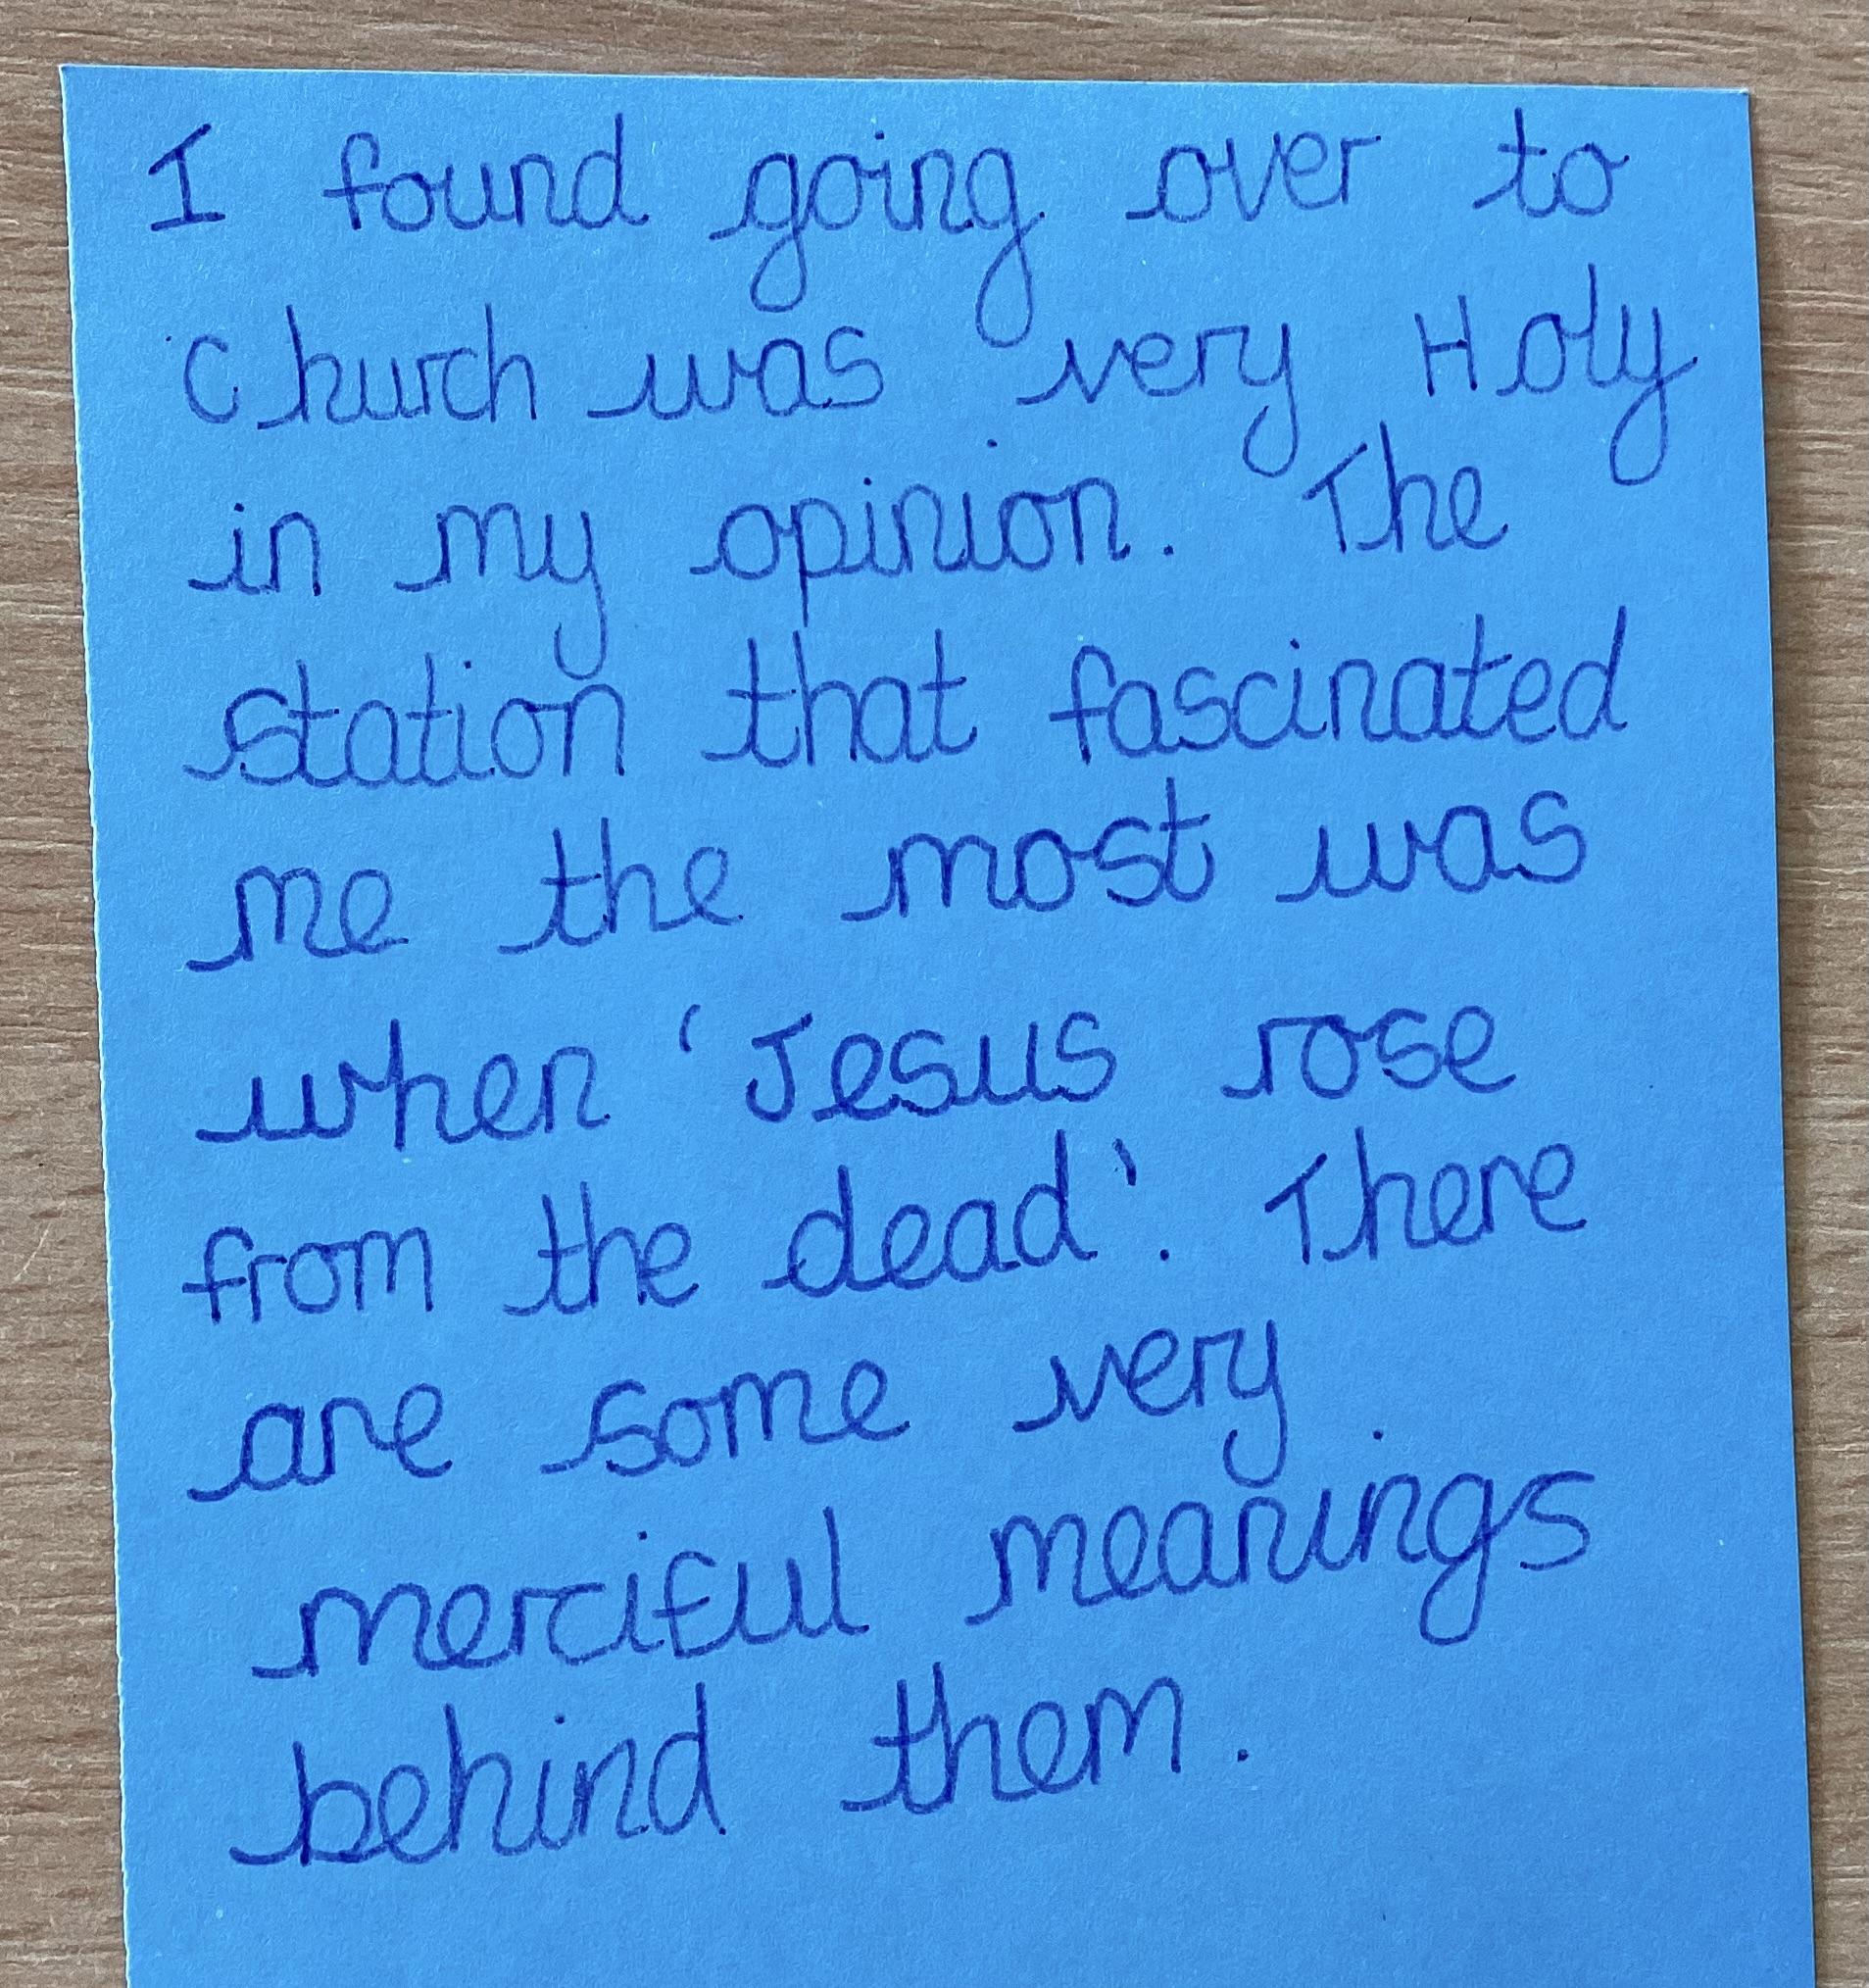 I found going over to
Church was very Holy
in my opinion. The
station that fascinated
me the most was
when 'Jesus rose
from the dead'. There
are some very
merciful meanings
behind them.